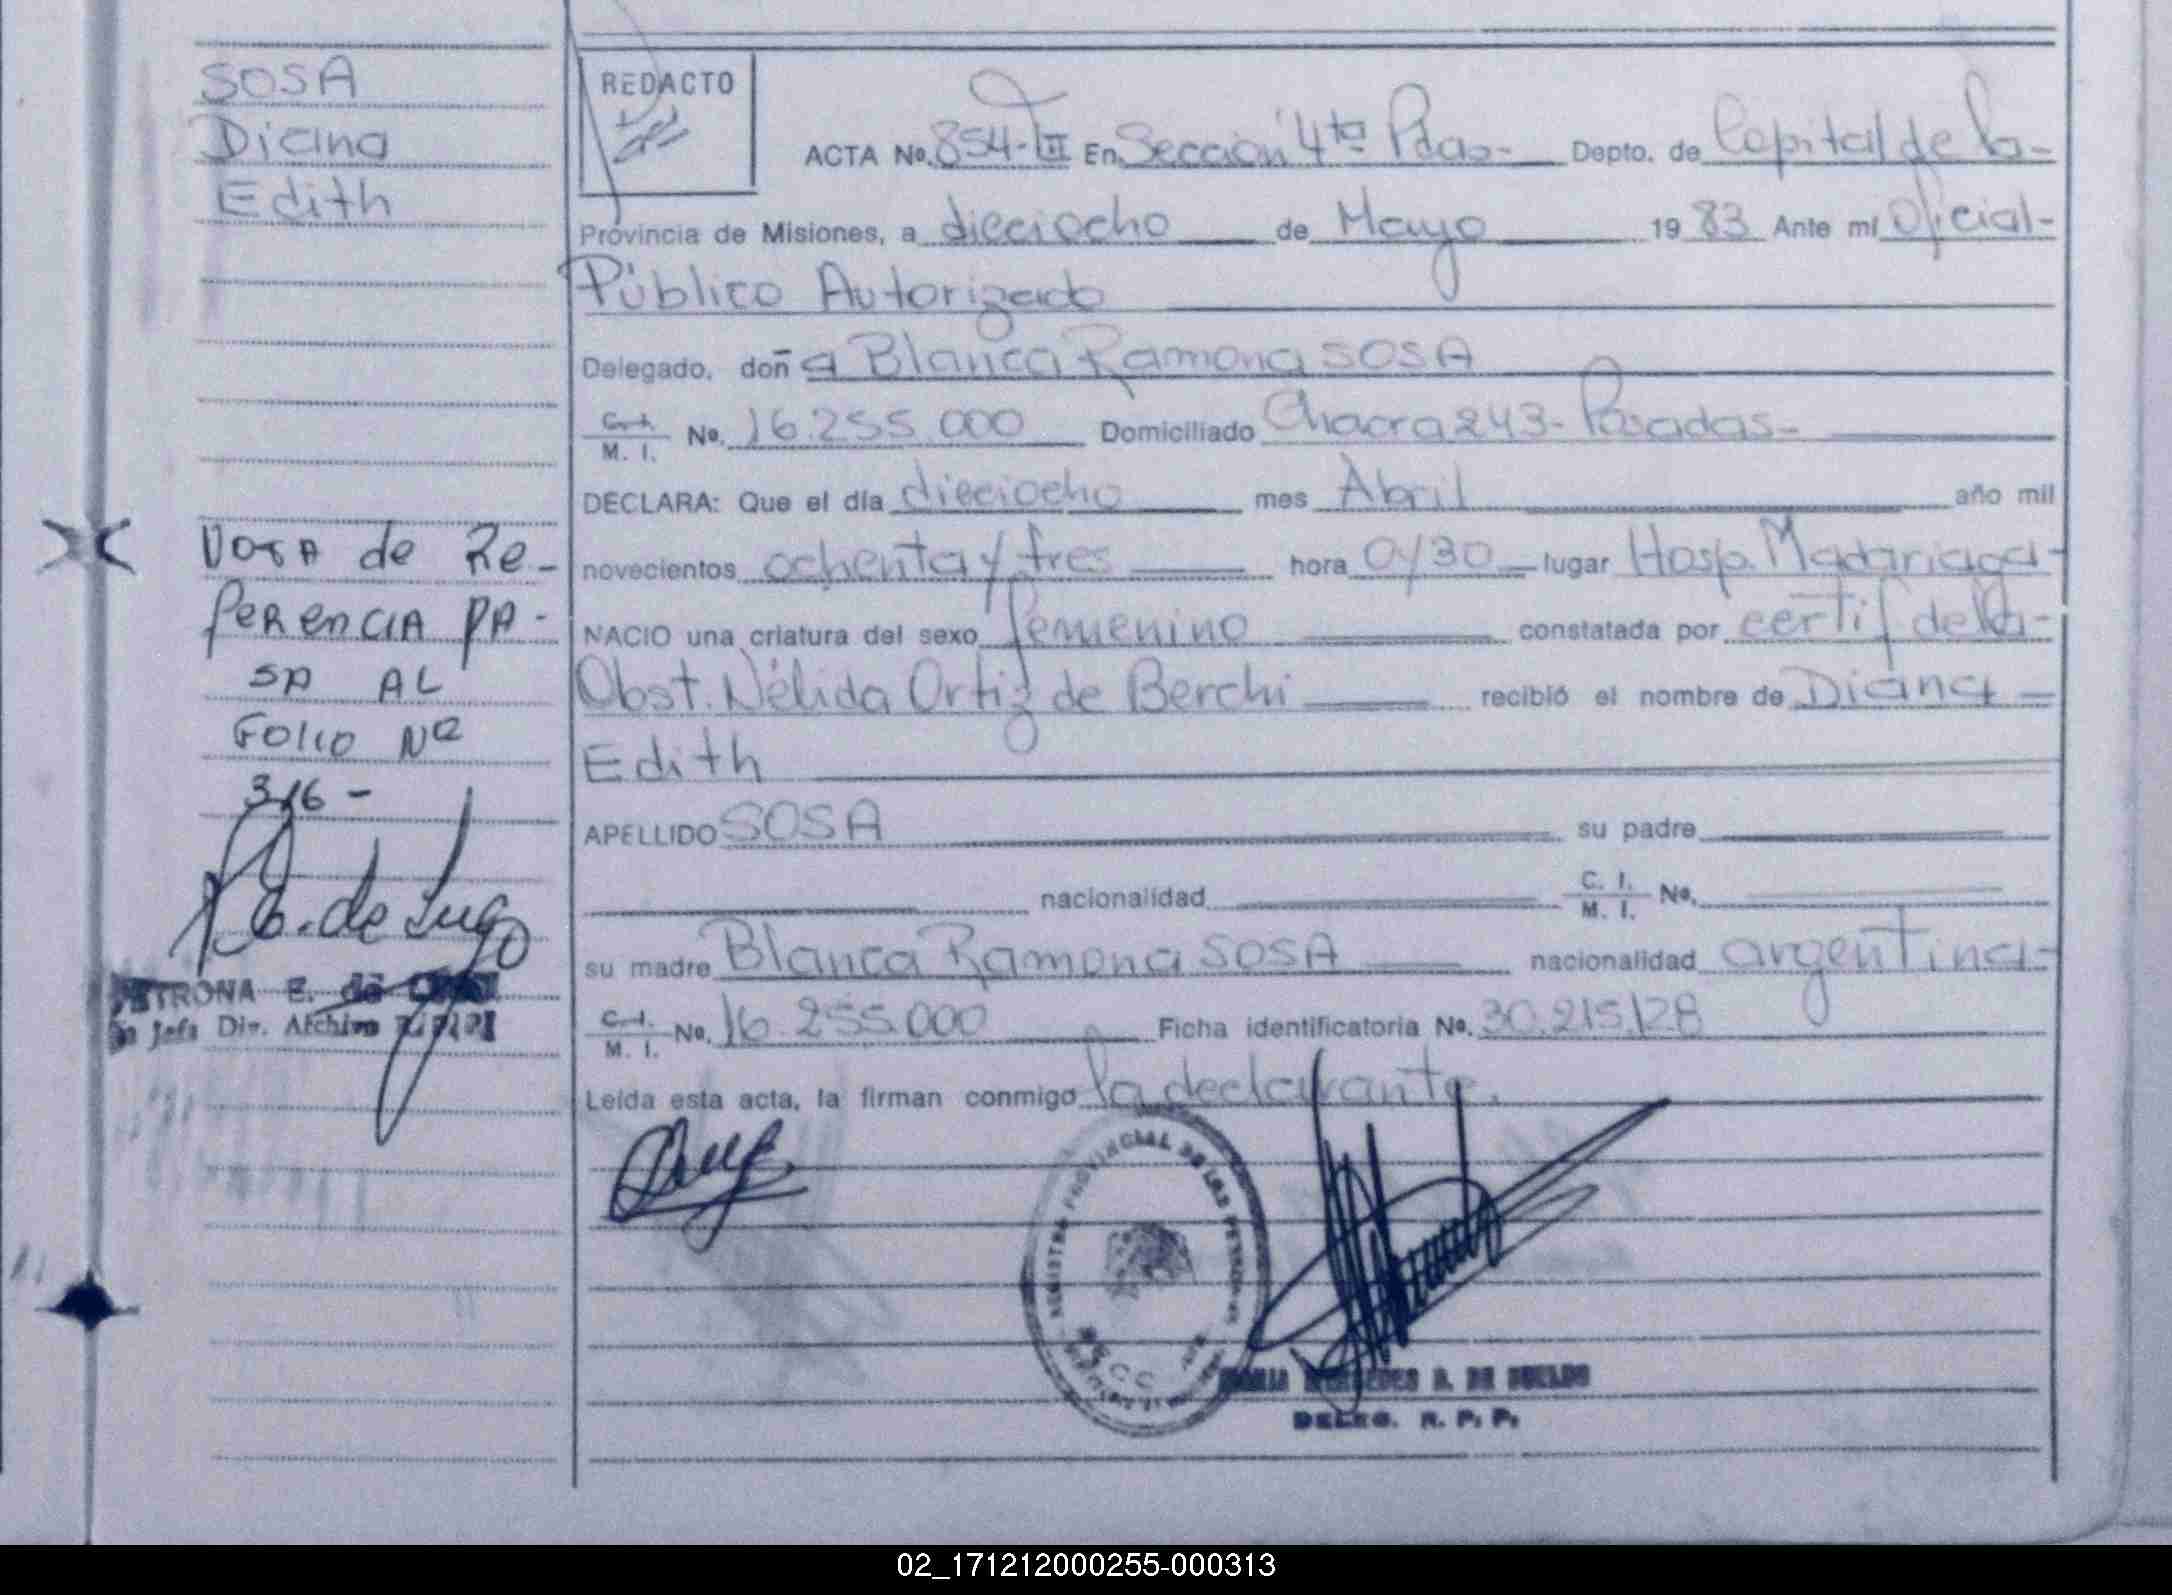 SOSA
Diana
Edith
Nota de Re-
ferencia pa-
sa al
Folio Nº
316 -
PETRONA E. de
Jefa Div. Archivo
REDACTO
ACTA No. 854-III En Sección 4ta Pdas- Depto. de Capital de la-
Provincia de Misiones, a dieciocho de Mayo 19 83 Ante mí Oficial-
Público Autorizado
Delegado, doña Blanca Ramona SOSA
C. I. / M. I. No. 16.255.000 Domiciliado Chacra 243- Posadas-
DECLARA: Que el día dieciocho mes Abril año mil
novecientos ochenta y tres hora 0y30 lugar Hosp. Madariaga-
NACIO una criatura del sexo femenino constatada por certif de la-
Obst. Nélida Ortiz de Berchi recibió el nombre de Diana
Edith
APELLIDO SOSA su padre
nacionalidad C. I. / M. I. No.
su madre Blanca Ramona SOSA nacionalidad argentina-
C. I. / M. I. No. 16.255.000 Ficha identificatoria No. 30.215.128
Leída esta acta, la firman conmigo la declarante.
REGISTRO PROVINCIAL DE LAS PERSONAS
MARIA MERCEDES A. DE
DELEG. R. P. P.
02_171212000255-000313